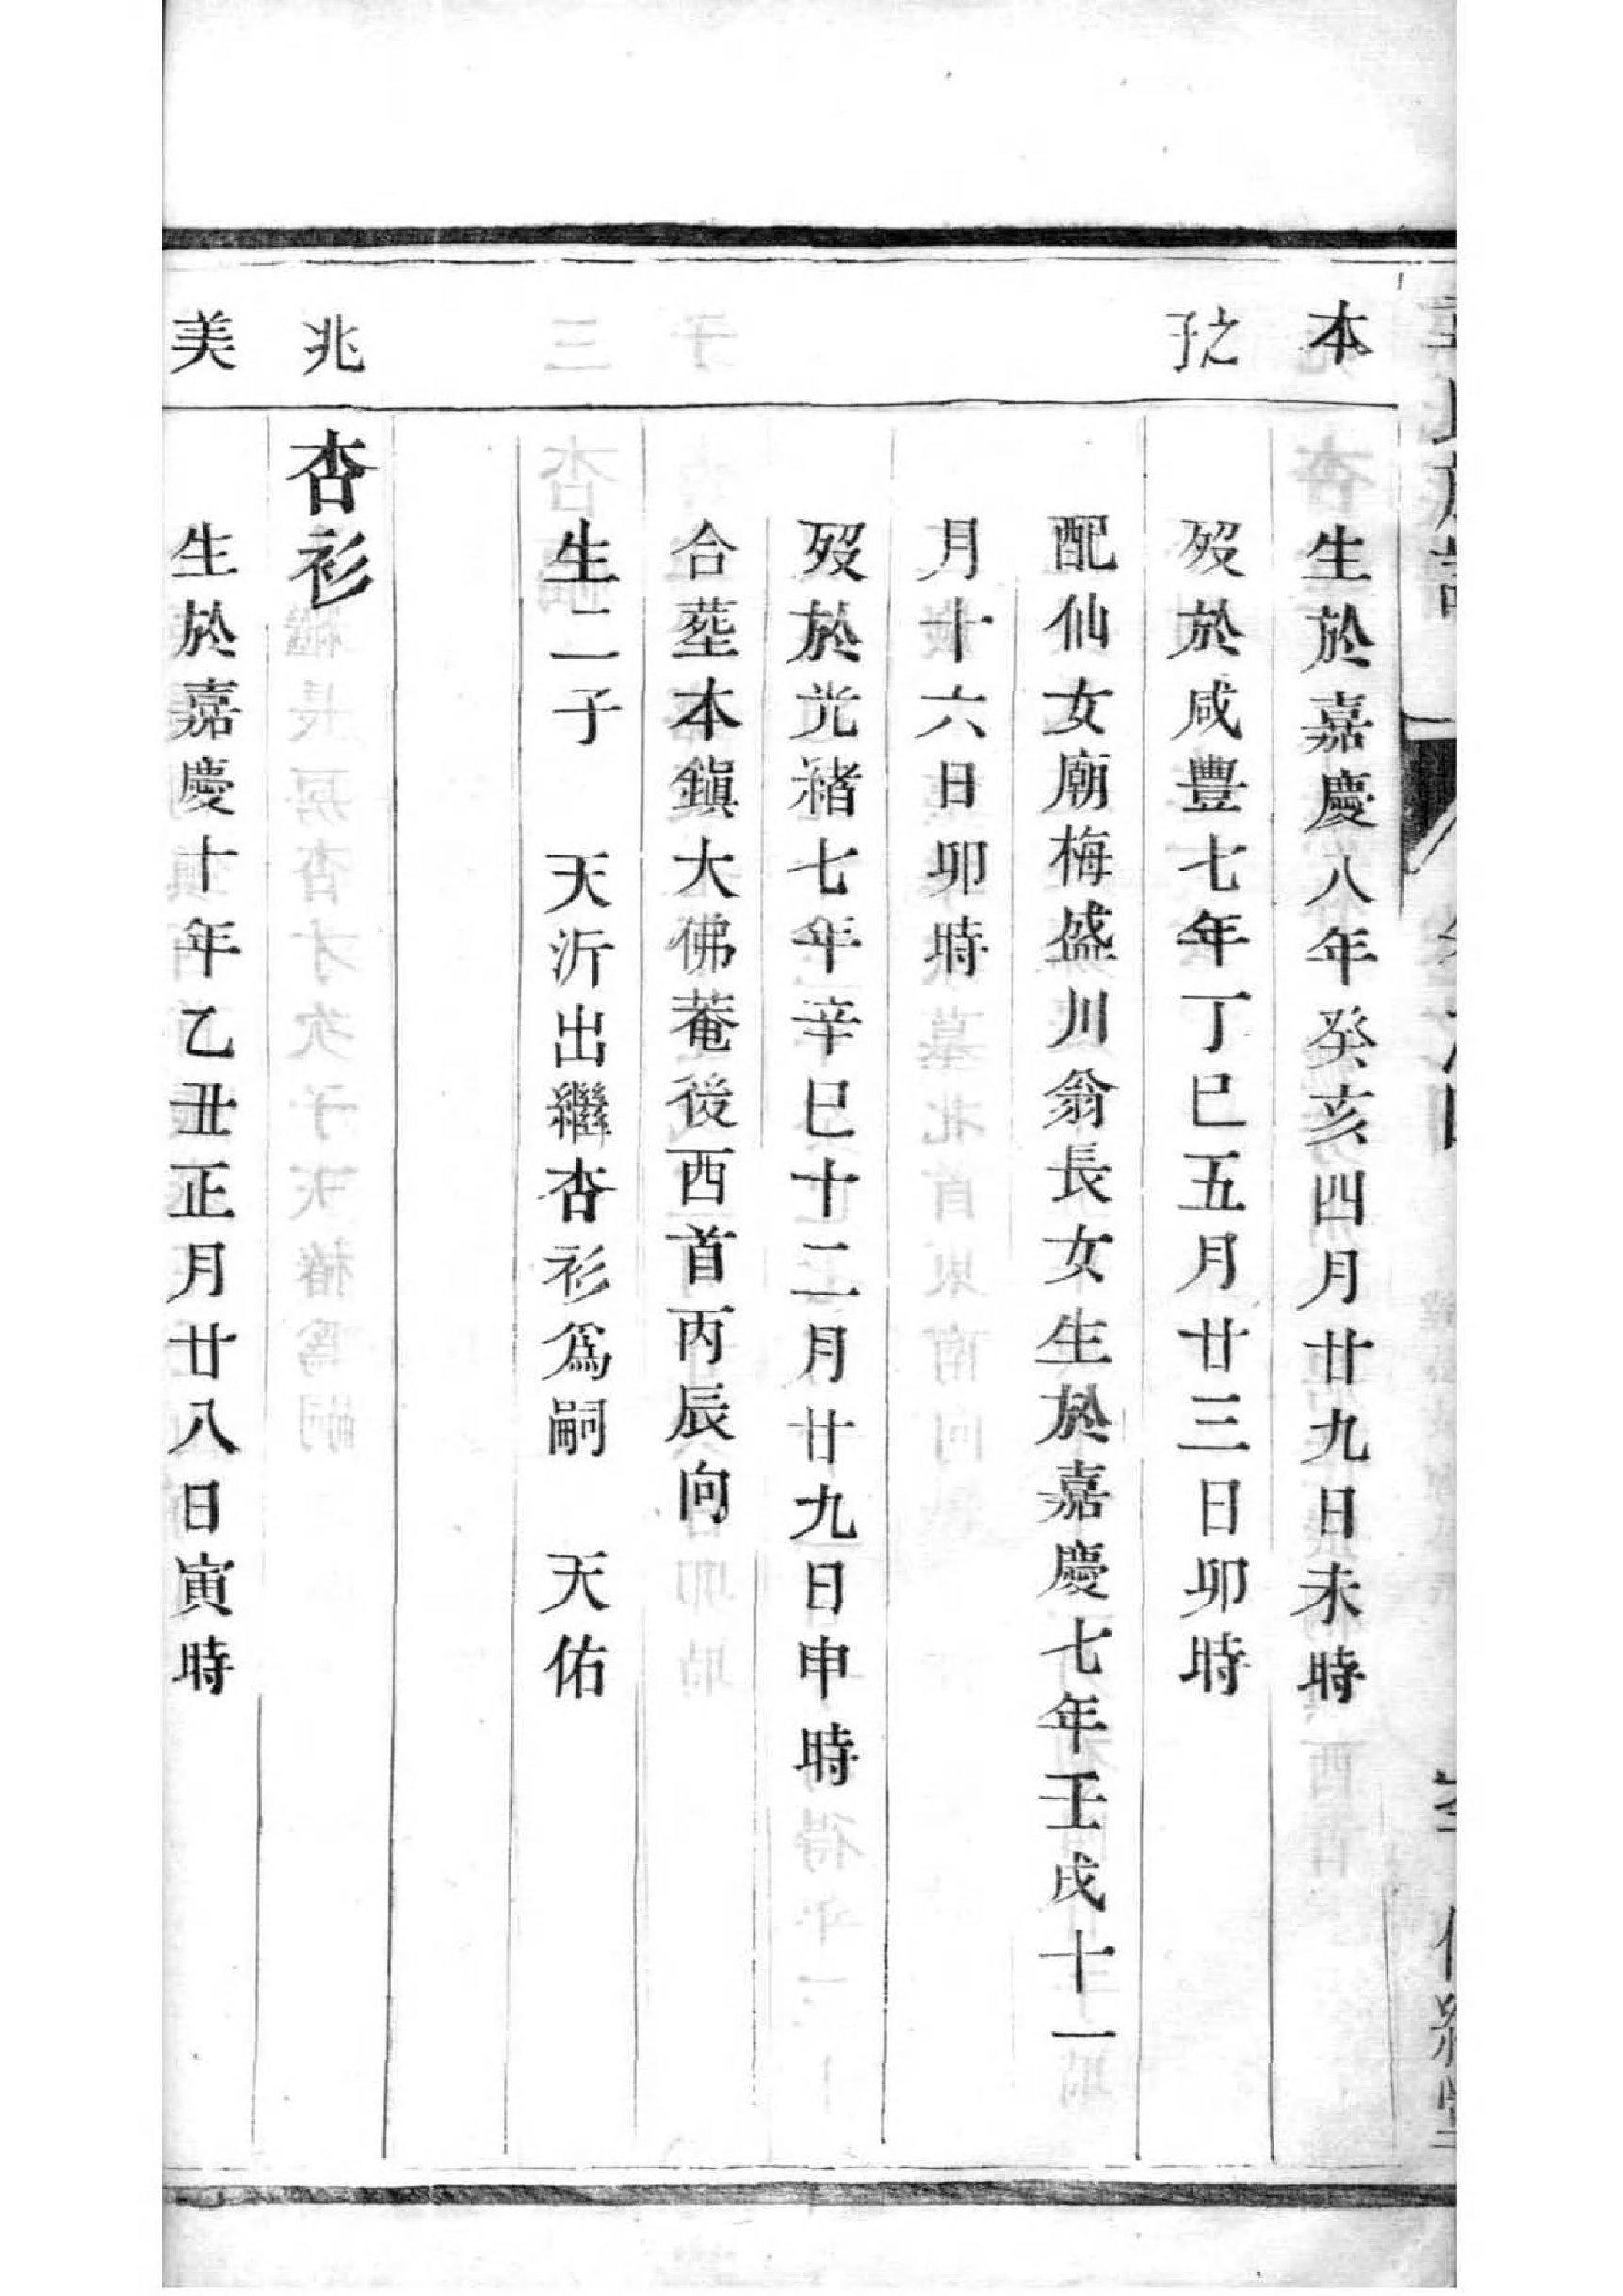 本
生於嘉慶八年癸亥四月廿九日未時
之子
歿於咸豐七年丁巳五月廿三日卯時
配仙女廟梅盛川翁長女生於嘉慶七年壬戌十一
月十六日卯時
歿於光緒七年辛巳十二月廿九日申時
合塟本鎭大佛菴後西首丙辰向
生二子 天沂出繼杏衫爲嗣 天佑
兆
杏衫
美
生於嘉慶十年乙丑正月廿八日寅時